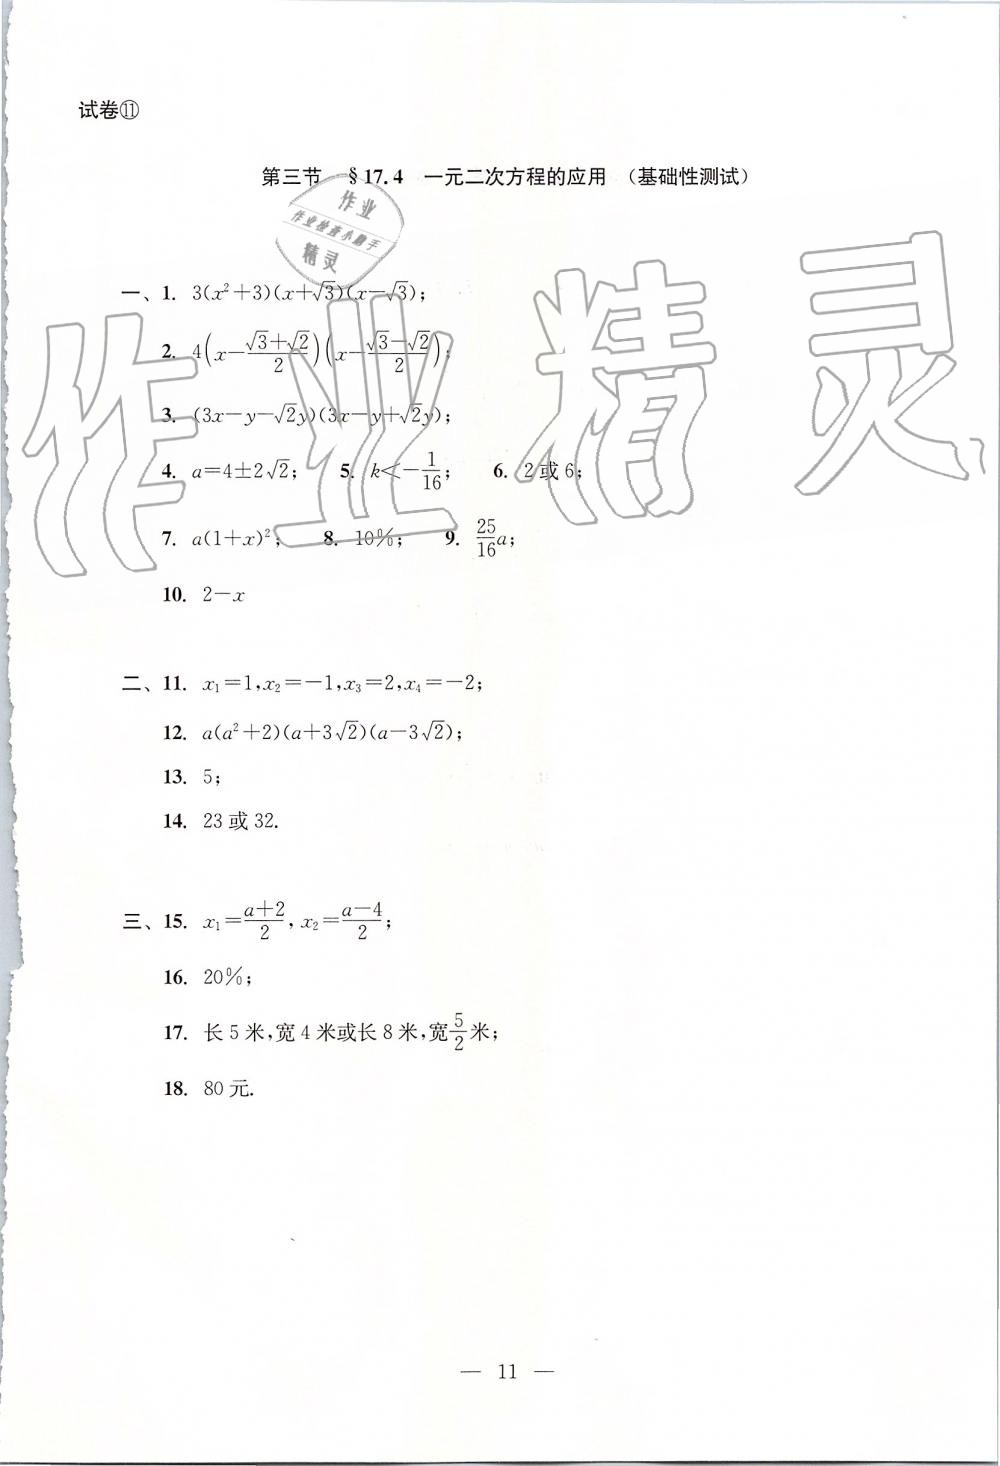 试卷⑪
第三节 §17.4 一元二次方程的应用 （基础性测试）
作业
作业检查小助手
精灵
一、1. 3(x²+3)(x+√3)(x-√3);
2. 4(x-(√3+√2)/2)(x-(√3-√2)/2);
3. (3x-y-√2y)(3x-y+√2y);
4. a=4±2√2; 5. k<-1/16; 6. 2或6;
7. a(1+x)²; 8. 10%; 9. 25/16a;
10. 2-x
作业精灵
二、11. x₁=1,x₂=-1,x₃=2,x₄=-2;
12. a(a²+2)(a+3√2)(a-3√2);
13. 5;
14. 23或32.
三、15. x₁=(a+2)/2, x₂=(a-4)/2;
16. 20%;
17. 长5米,宽4米或长8米,宽5/2米;
18. 80元.
— 11 —